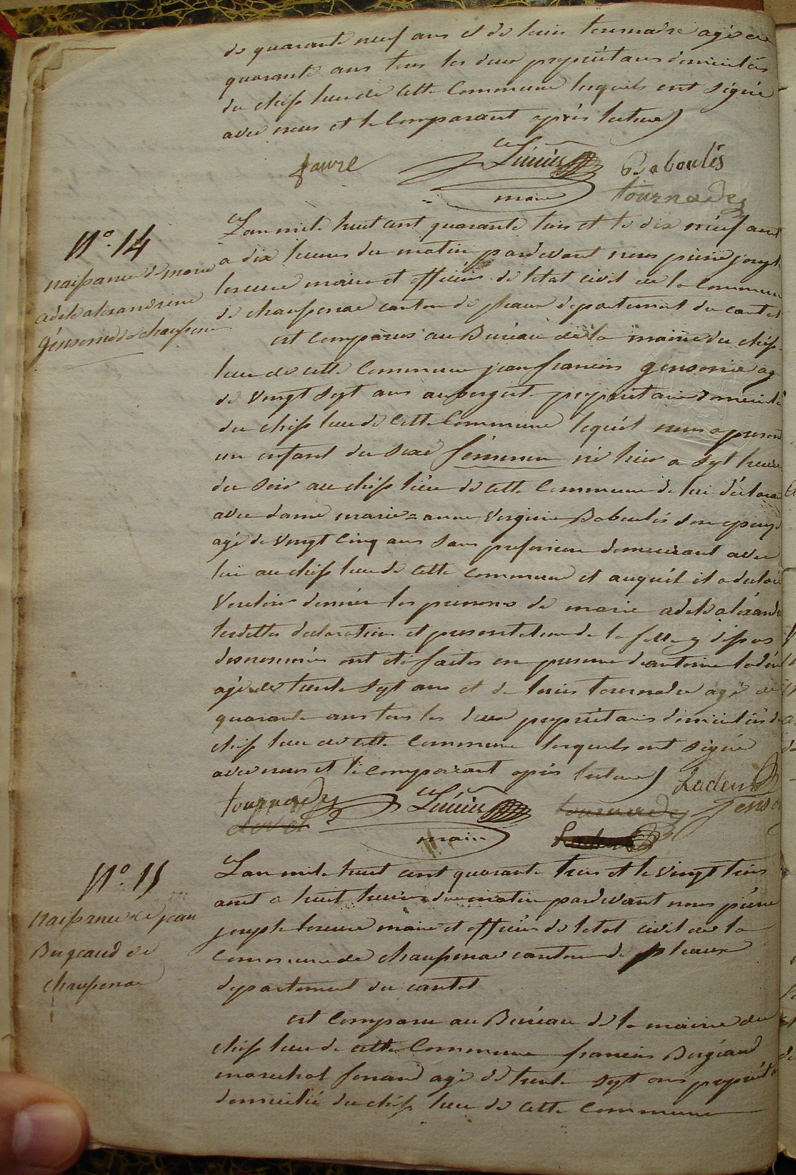 de quarante neuf ans et de louis tournadre agé de
quarante ans tous les deux propriétaires domiciliés
du chef lieu de cette Commune lesquels ont signé
avec nous et le Comparant après lecture)
faure
maire
Baboulès
tournadre
N.° 14
naissance de marie
adele alexandrine
gensonie de chaussenac
L'an mile huit cent quarante trois et le dix neuf aout
a dix heures du matin pardevant nous pierre joseph
maire et officier de l'etat civil de la Commune
de chaussenac canton de pleaux departement du cantal
est Comparus au Bureau de la mairie du chef
lieu de cette Commune jean francois gensonie agé
de Vingt sept ans aubergiste propriétaire domicilié
du chef lieu de Cette Commune lequel nous a présenté
un enfant du sexe féminin né hier a sept heures
du Soir au chef lieu de cette Commune de lui déclarant
avec dame marie=anne Virginie Baboulés son epouse
agé de Vingt Cinq ans Sans profession demeurant avec
lui au chef lieu de cette Commune et auquel il a déclaré
Vouloir donner les prenoms de marie adele alexandrine
lesdittes declaration et presentation de la fille y dessus
denommée ont été faites en presence d'antoine
agé de trente sept ans et de louis tournadre agé de
quarante ans tous les deux propriétaires domiciliés du
chef lieu de cette Commune lesquels ont signé
avec nous et le Comparant après lecture)
tournadre
maire
tournadre
N.° 15
naissance de jean
Bugeaud de
chaussenac
L'an mile huit cent quarante trois et le vingt trois
aout a huit heures du matin pardevant nous pierre
joseph maire et officier de l'etat civil de la
Commune de chaussenac canton de pleaux
departement du cantal
est Comparu au Bureau de la mairie du
chef lieu de cette Commune francois Bugeaud
marechal ferrand agé de trente sept ans propriétaire
domicilié du chef lieu de cette Commune